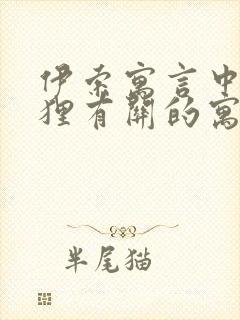 伊索寓言中
狸有关的寓
半尾猫